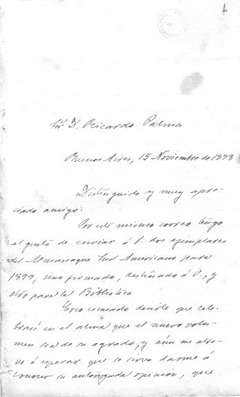 Sr. D. Ricardo Palma
Buenos Aires, 15 Noviembre de 1898
Distinguido y muy apre-
ciado amigo:
Por este mismo correo tengo
el gusto de enviar á V. dos ejemplares
del Almanaque Sud Americano para
1899, uno firmado, destinado á V., y
otro para la Biblioteca
Creo excusado decirle que cele-
braré en el alma que el nuevo volu-
men sea de su agrado, y aún me atre-
vo á esperar que se sirva darme á
conocer su autorizada opinión, que